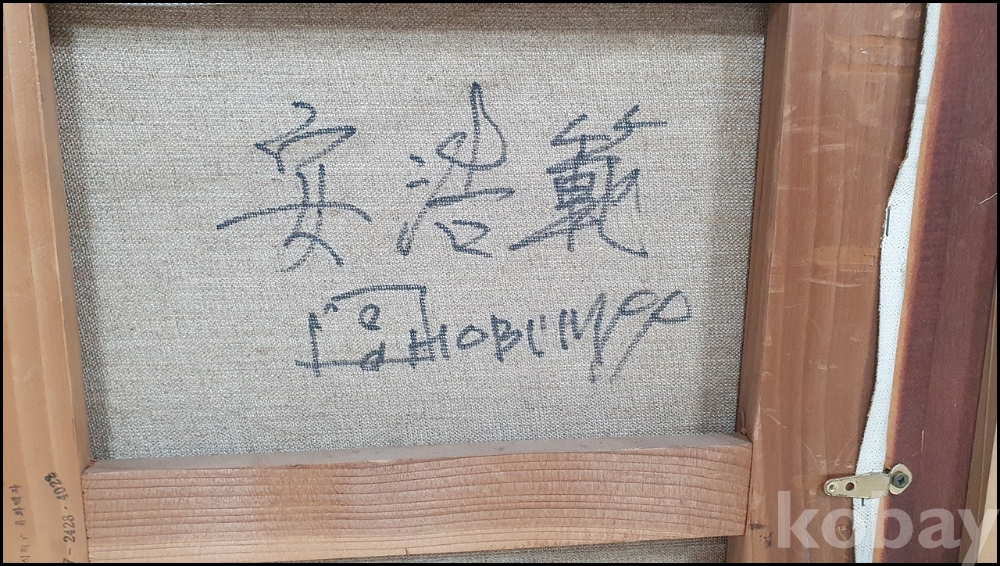 安浩範
HOBUM 99
7-2423·4028
kobay